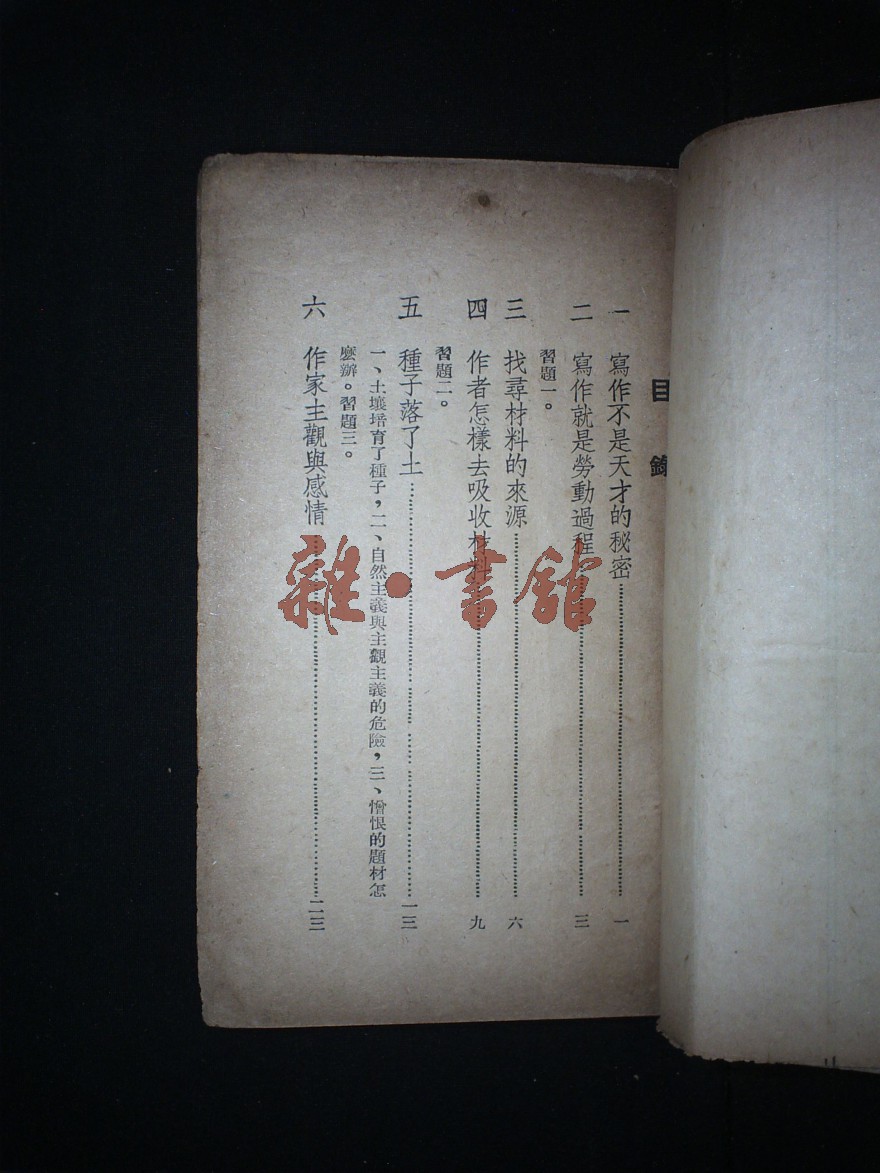 目錄
一 寫作不是天才的秘密……一
二 寫作就是勞動過程……三
習題一。
三 找尋材料的來源……六
四 作者怎樣去吸收材料……九
習題二。
五 種子落了土……一三
一、土壤培育了種子，二、自然主義與主觀主義的危險，三、憎恨的題材怎
麽辦。習題三。
六 作家主觀與感情……二三
雜·書館